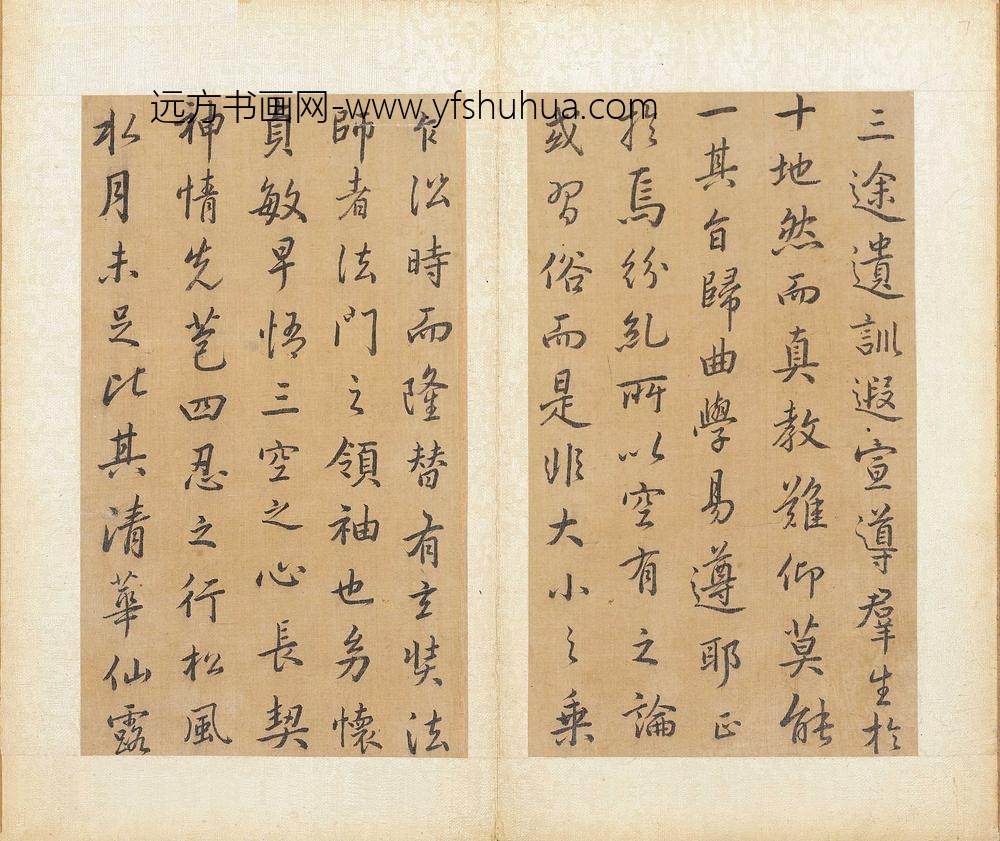 远方书画网-www.yfshuhua.com
三途遺訓遐宣導羣生於
十地然而真教難仰莫能
一其旨歸曲學易遵耶正
於焉紛糺所以空有之論
或習俗而是非大小之乘
乍沿時而隆替有玄奘法
師者法門之領袖也幼懷
貞敏早悟三空之心長契
神情先苞四忍之行松風
水月未足比其清華仙露